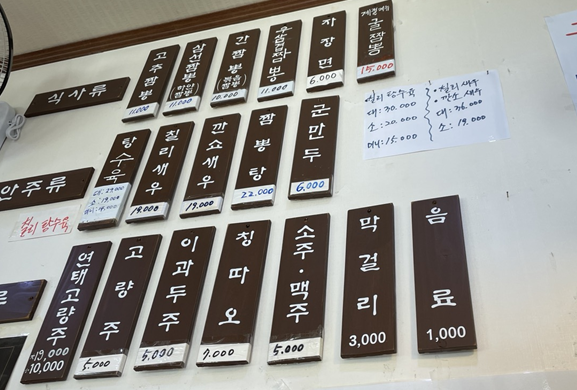 식사류
고추짬뽕
11,000
삼선짬뽕
(하얀짬뽕)
11,000
간짬뽕
(볶음짬뽕)
10,000
11,000
자장면
6,000
계절메뉴
굴짬뽕
15,000
칠리 탕수육
대: 30,000
소: 20,000
미니: 15,000
• 칠리 새우
• 깐쇼 새우
대: 36,000
소: 19,000
안주류
칠리 탕수육
탕수육
대: 29,000
소: 19,000
미니: 14,000
칠리새우
19,000
깐쇼새우
19,000
짬뽕탕
22,000
군만두
6,000
류
연태고량주
小19,000
大
고량주
5,000
이과두주
5,000
칭따오
7,000
소주·맥주
5,000
막걸리
3,000
음료
1,000